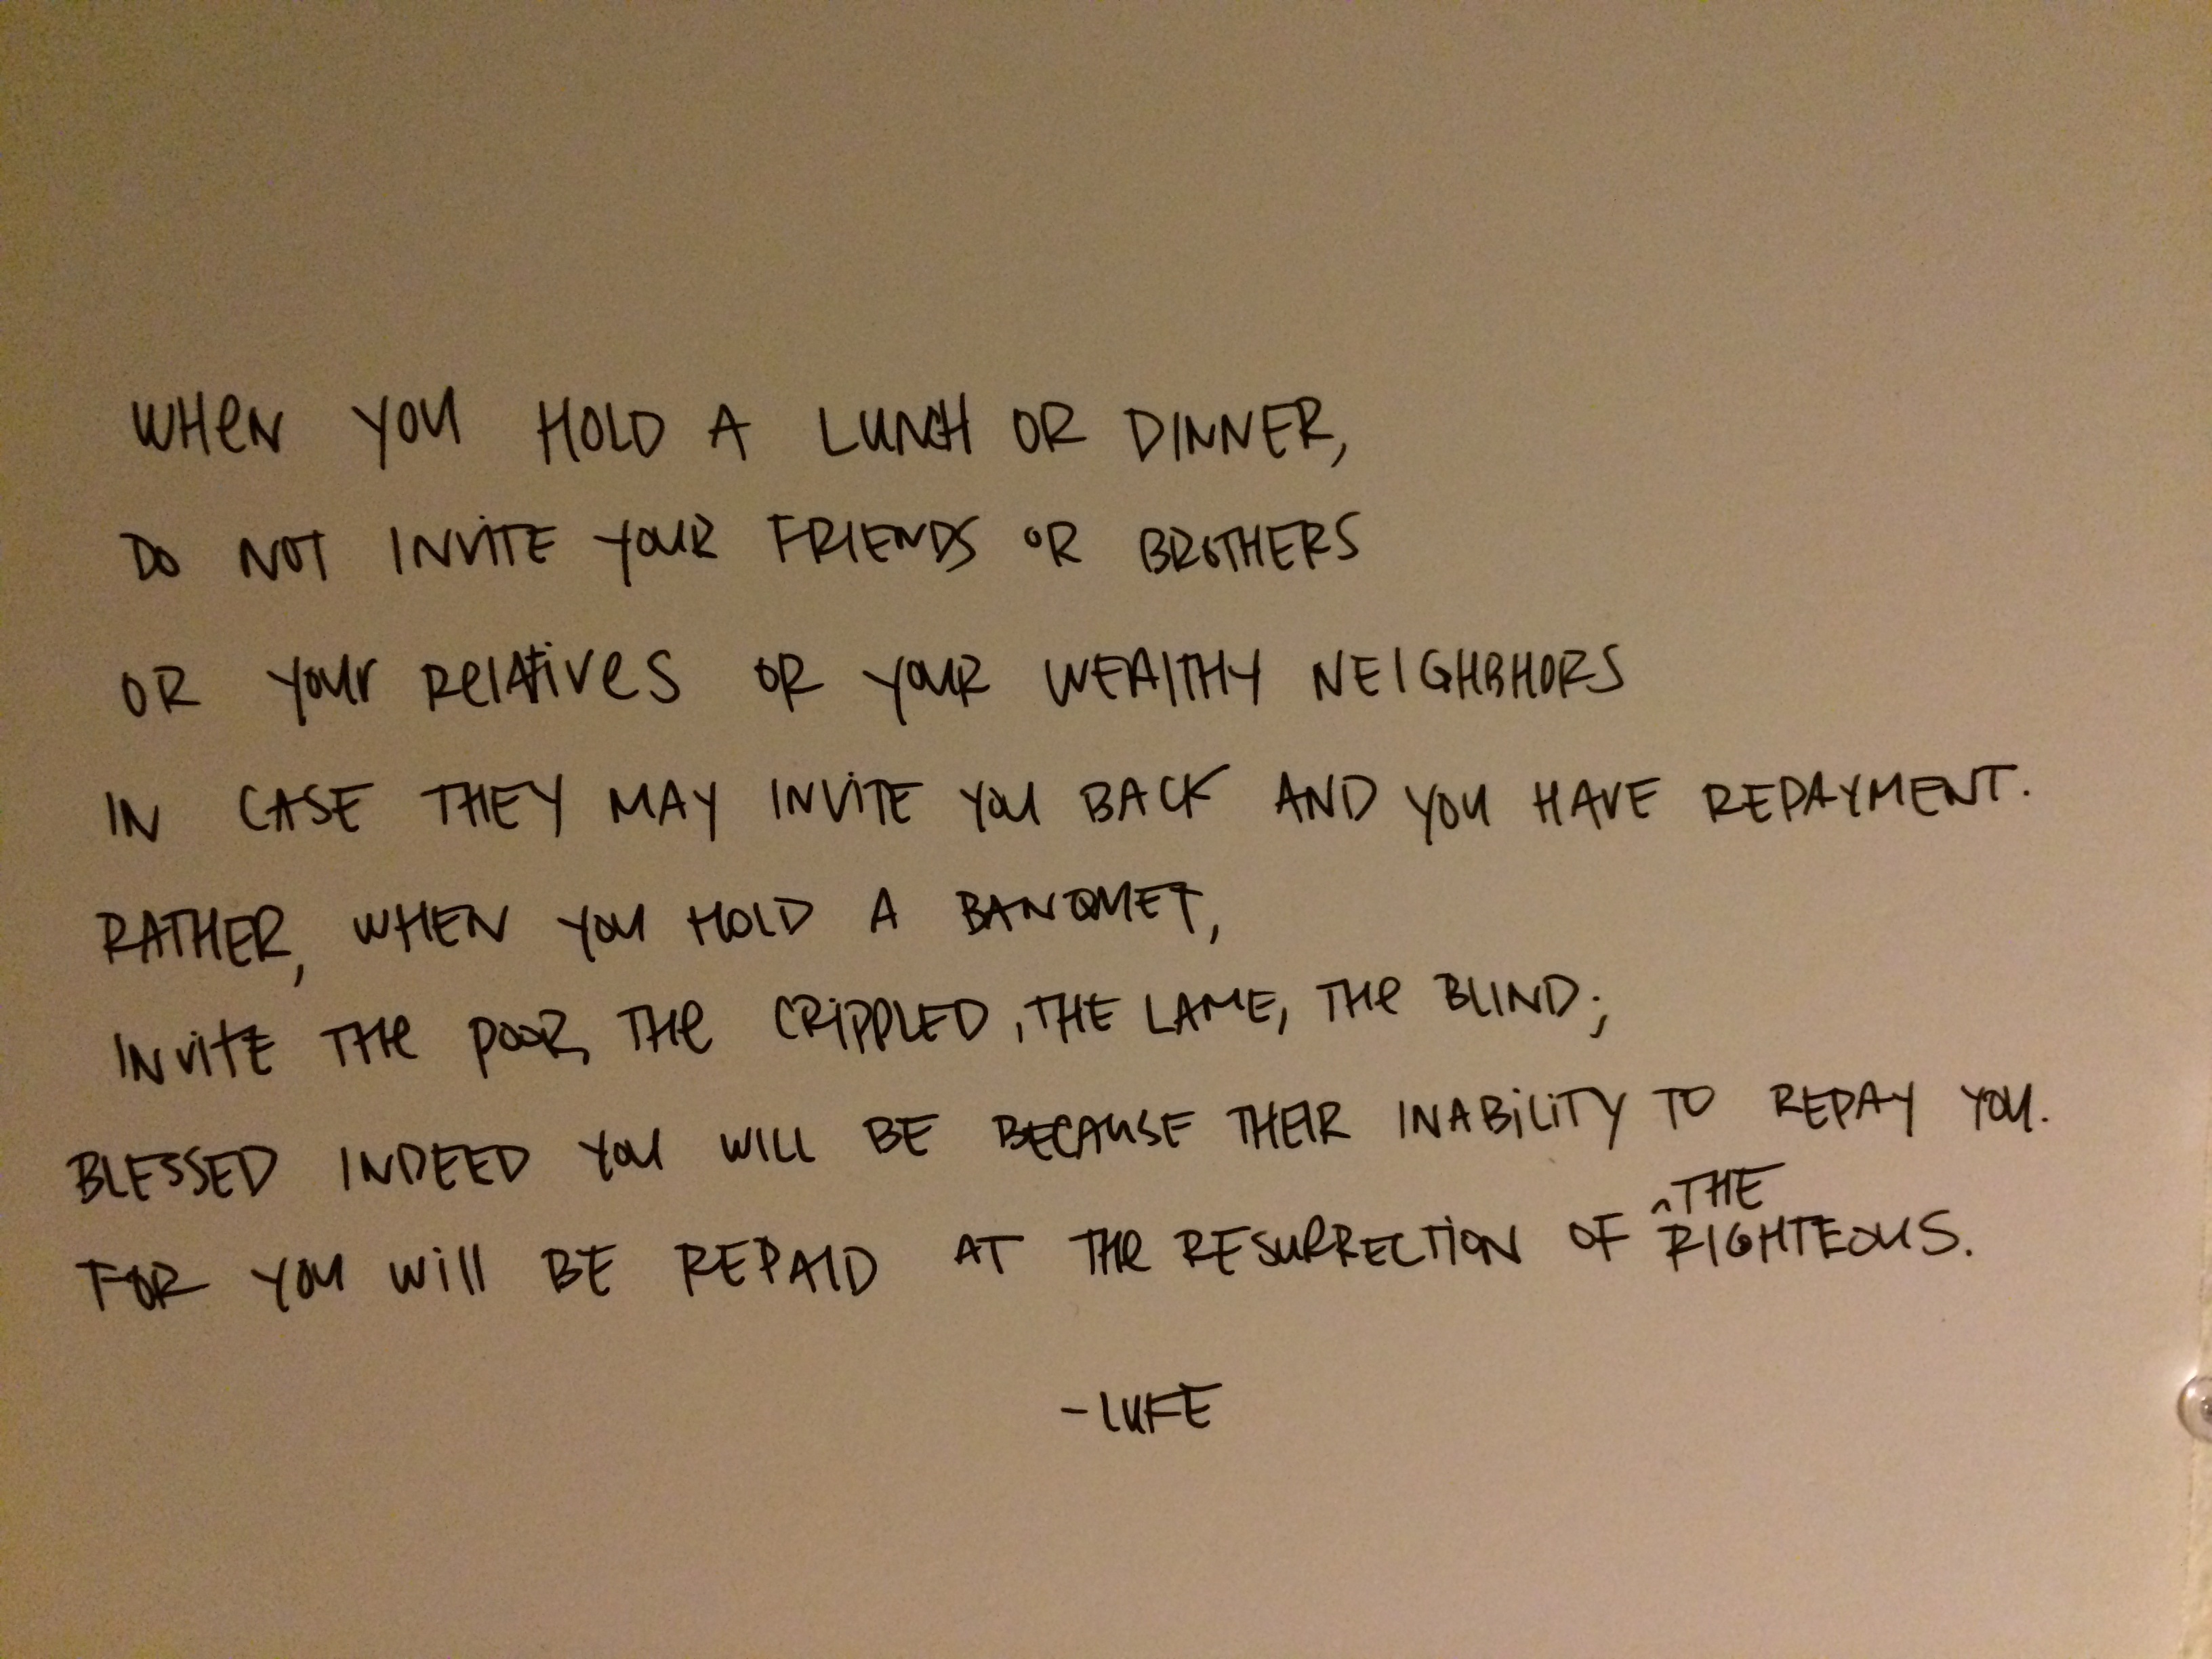 WHeN YOU HOLD A LUNCH OR DINNER,
DO NOT INViTE YOUR FRIENDS OR BROTHERS
OR YOUr RelAtives OR YOUR WEAlTHY NEIGHBHORS
IN CASE THEY MAY INViTE YOU BACK AND YOU HAVE REPAYMENT.
RATHER, WHEN YOU HOLD A BANQUET,
INViTE THe POOR, THe CRiPPLED, THE LAME, THe BLIND;
BLESSED INDEED YOU WILL BE BECAUSE THEIR INABiLiTY TO REPAY YOU.
FOR YOU Will BE REPAID AT THe RESURRECTiON OF ^THE RIGHTEOUS.
-LUKE